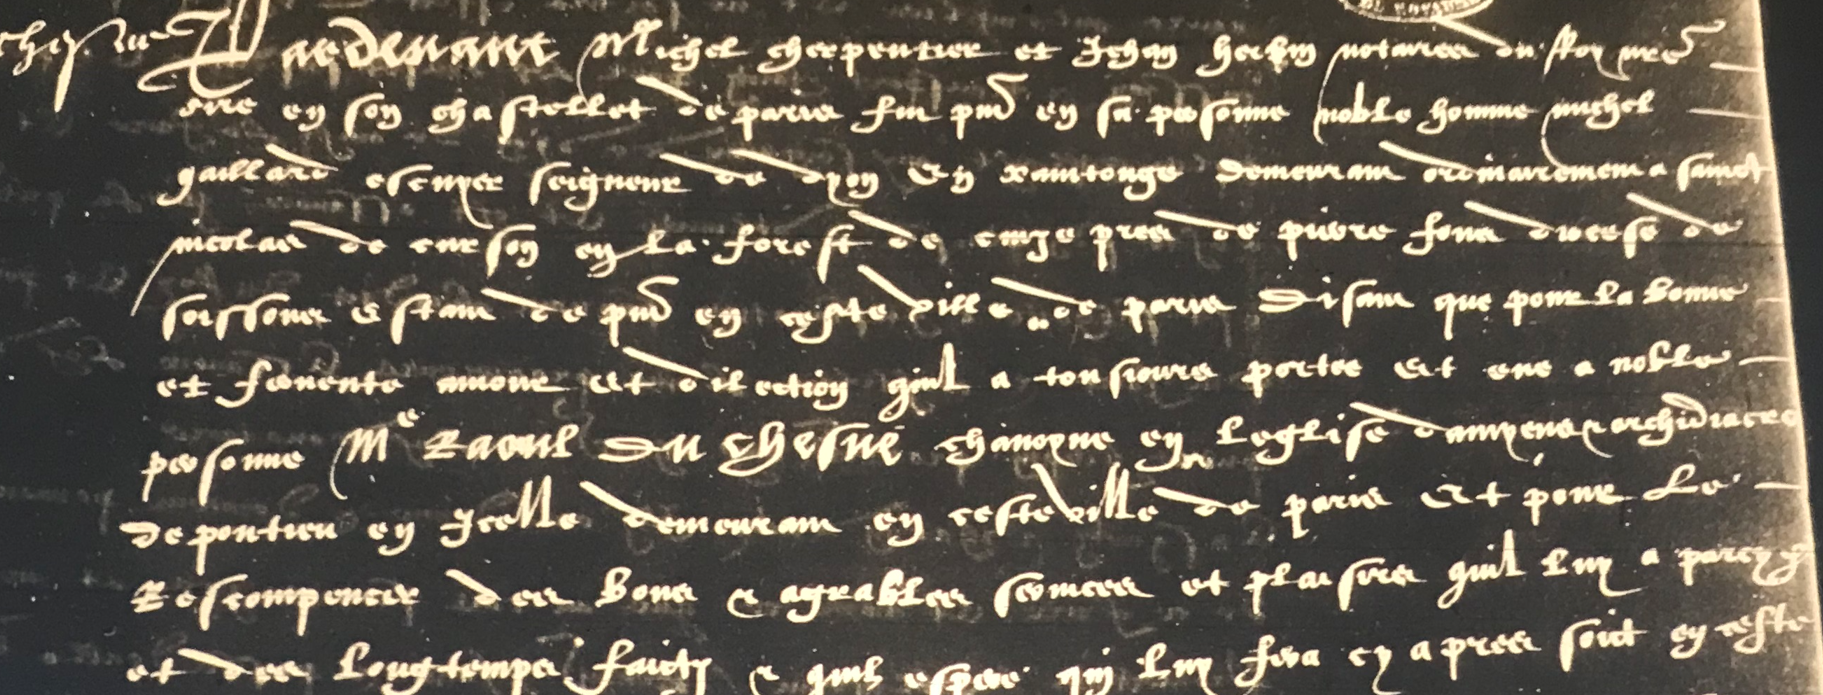 Pardevant Michel Cherpentier et Jehan notaires du Roy nre
sire en son chastellet de paris fut pnt en sa personne noble homme michel
gaillard escuyer seigneur de dyon en xaintonge demeurant ordinairement a sainct
nicolas de courson en la forest de cuyse pres de pierre fons diocese de
soissons estant de pnt en ceste ville de paris Disant que pour la bonne
et fervente amour et dilection quil a tousiours portee et que a noble
personne Me Raoul Du Chesne chanoyne en leglise damyens & archidiacre
de pontieu en Icelle demeurant en ceste ville de paris et pour Le
Rescompencer des bons & agreables services et plaisirs quil luy a par cy
et des longtemps faictz & quil espere quil luy fera cy apres soit en ceste